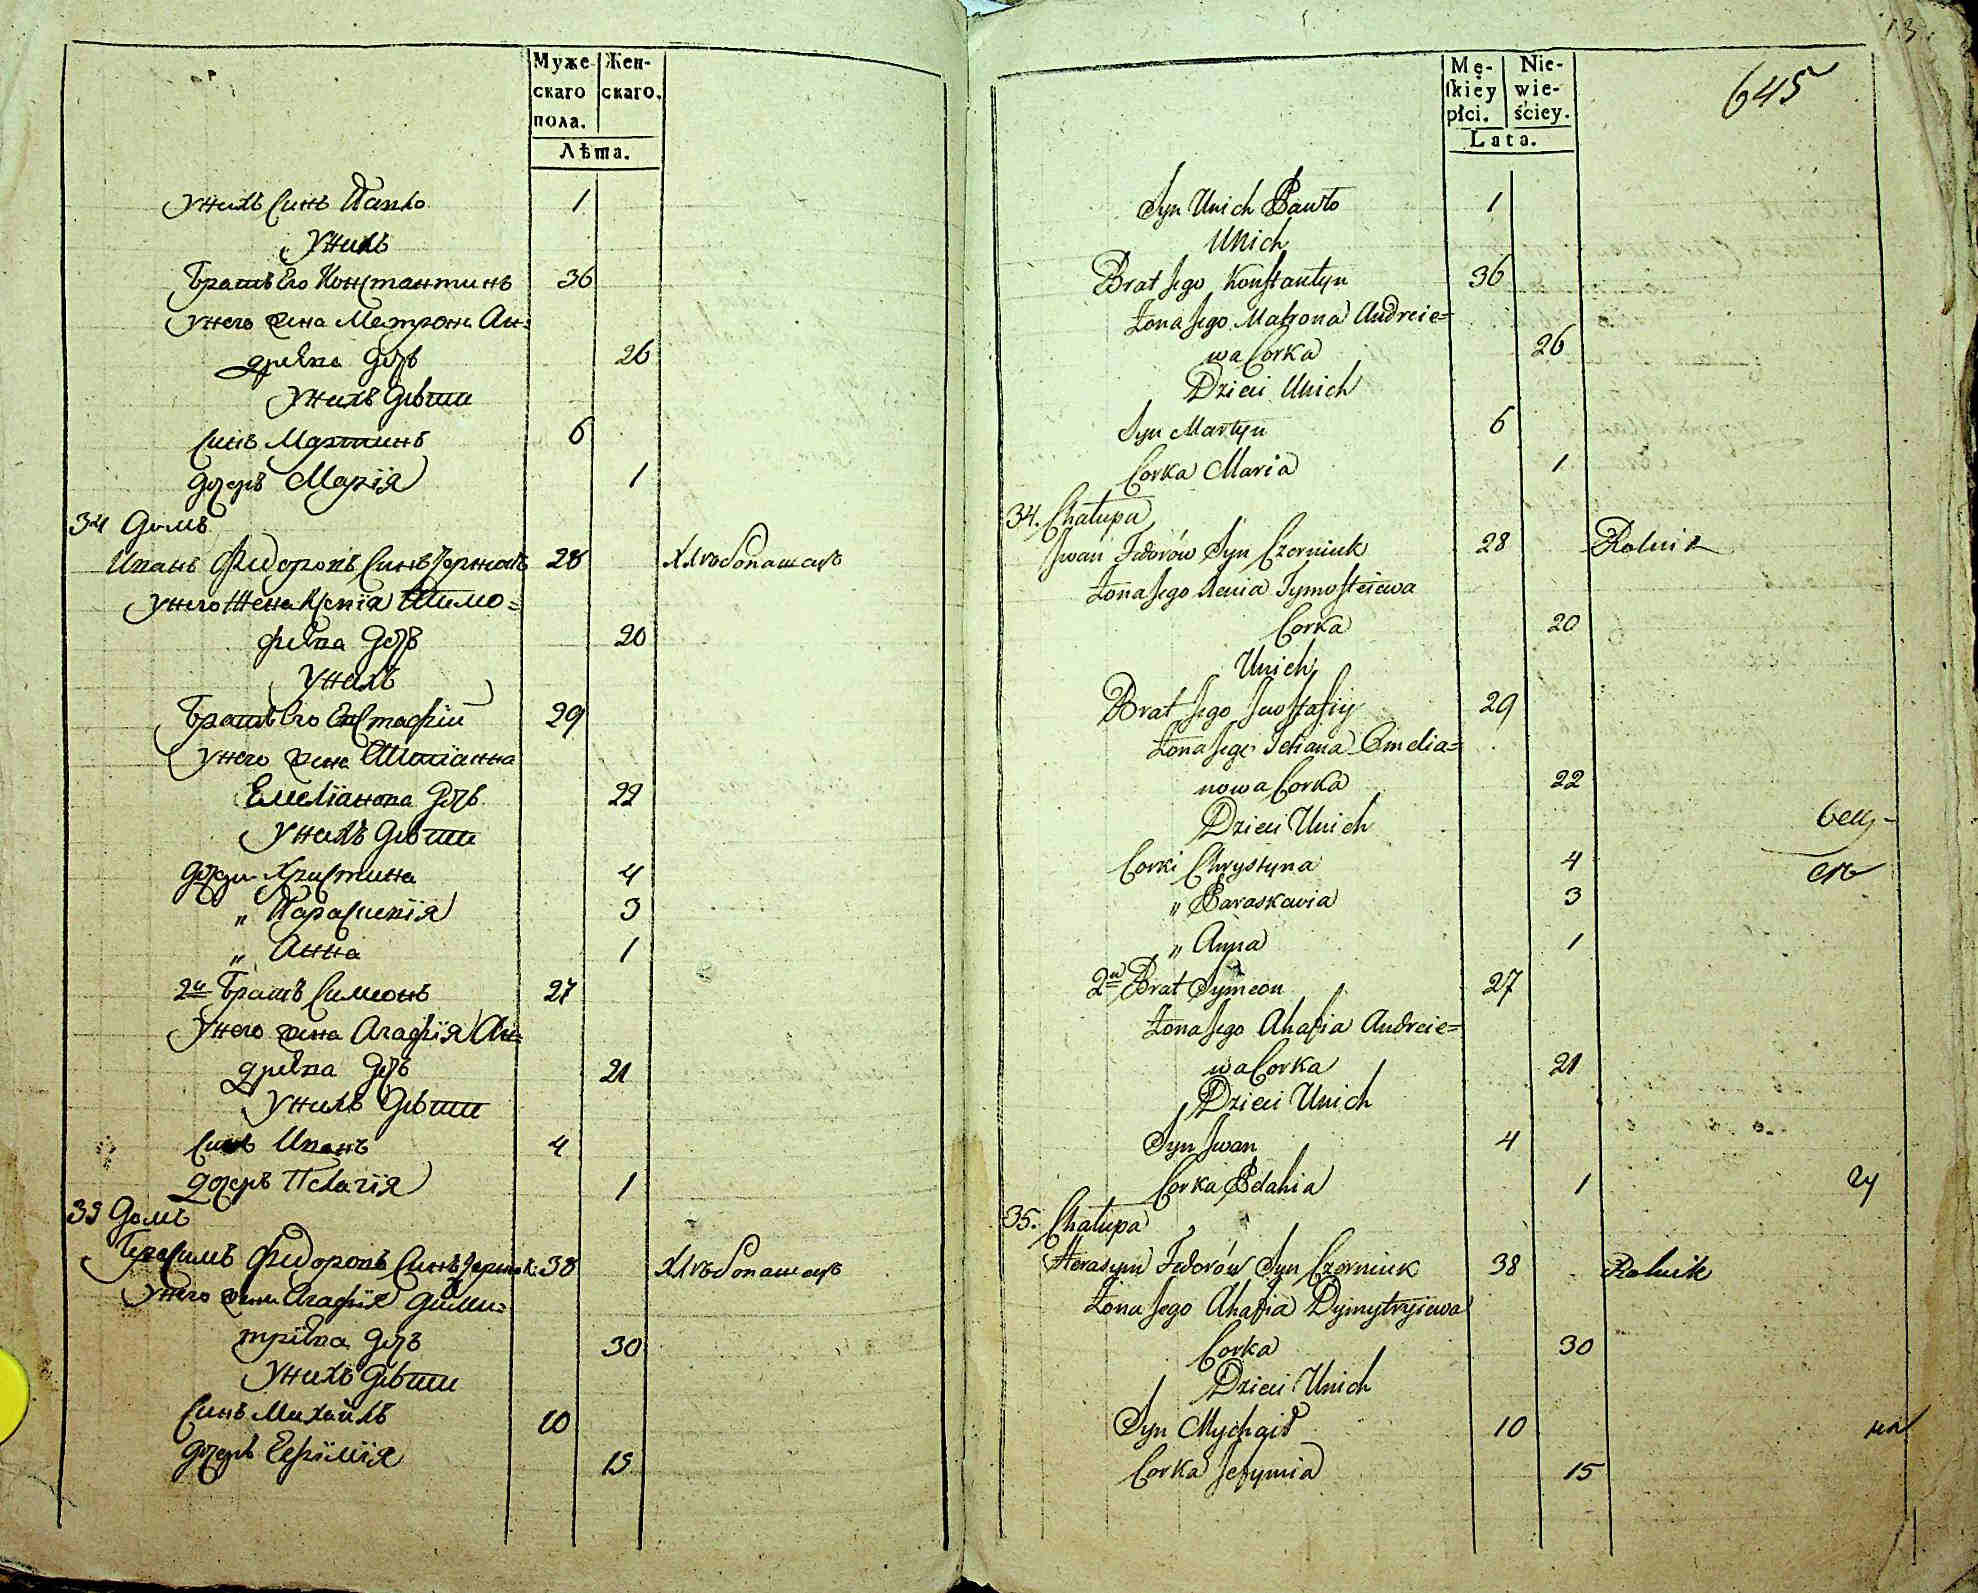 Муже-
скаго
пола.
Жен-
скаго.
Лѣта.
Унихъ Синъ Павло 1
Унихъ
Братъ Его Константинъ 36
Унего жена Матрона Ан-
дреева дочь 26
Унихъ Дѣти
Синъ Мартинъ 6
дочерь Марїя 1
34 Домъ
Иванъ Фидоровъ Синъ Чернюкъ 28 Хлѣбопашецъ
Унего Жена Ксенїя Тимо=
феева дочь 20
Унихъ
Братъ Его Евстафїй 29
Унего жена Татїанна
Емелїанова дочь 22
Унихъ Дѣти
дочери Христина 4
„ Параскевїя 3
„ Анна 1
2й Братъ Симеонъ 27
Унего жена Агафїя Ан=
дреева дочь 21
Унихъ Дѣти
Синъ Иванъ 4
дочерь Пелагїя 1
35 Домъ
Герасимъ Фидоровъ Синъ Чернюк: 38 Хлѣбопашецъ
Унего жена Агафїя Дими=
трїева дочь 30
Унихъ Дѣти
Синъ Михайлъ 10
дочерь Ефїмїя 15
13.
645
Mę-
skiey
płci.
Nie-
wie-
ściey.
Lata.
Syn Unich Pawło 1
Unich
Brat Jego Konstantyn 36
Żona Jego Matrona Andreie=
wa Corka 26
Dzieci Unich
Syn Martyn 6
Corka Maria 1
34. Chałupa
Jwan Fedorów Syn Czerniuk 28 Rolnik
Żona Jego Xenia Tymofteiewa
Corka 20
Unich
Brat Jego Jewstafiy 29
Żona Jego Tetiana Omelia=
nowa Corka 22
Dzieci Unich
Corki Chrystyna 4
„ Paraskawia 3
„ Anna 1
2й Brat Symeon 27
Żona Jego Ahafia Andreie=
wa Corka 21
Dzieci Unich
Syn Jwan 4
Corka Pelahia 1
35. Chałupa
Herasym Fedorów Syn Czerniuk 38 Rolnik
Żona Jego Ahafia Dymytryiewa
Corka 30
Dzieci Unich
Syn Mychaił 10
Corka Jefymia 15